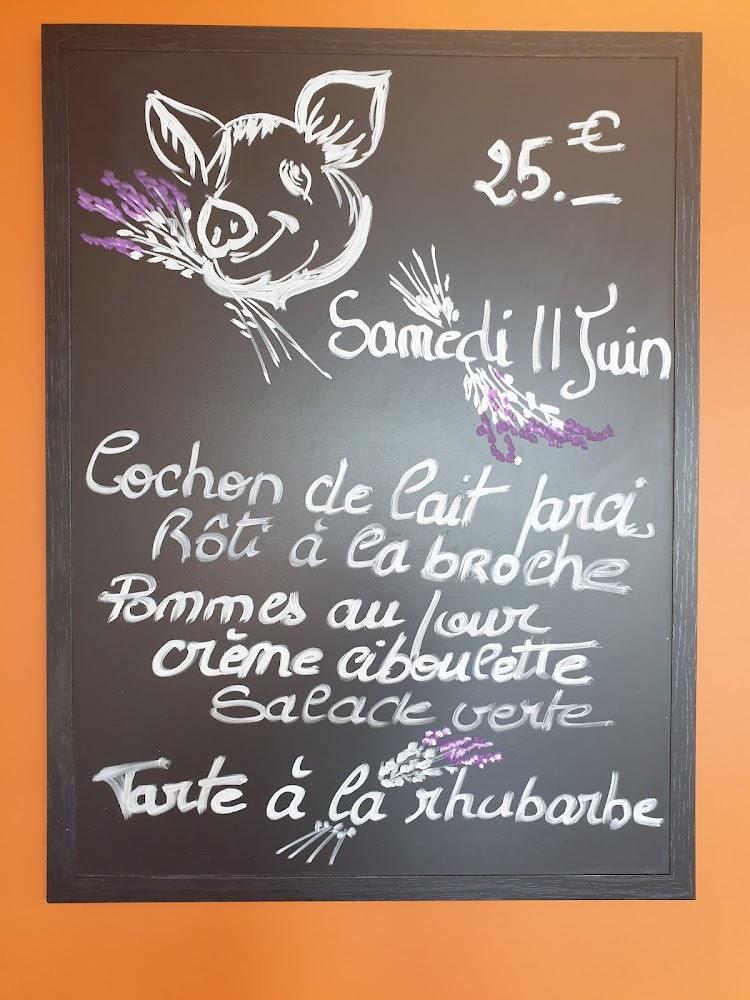 25.€
Samedi 11 Juin
Cochon de lait farci
Rôti à la broche
Pommes au four
crème ciboulette
Salade verte
Tarte à la rhubarbe